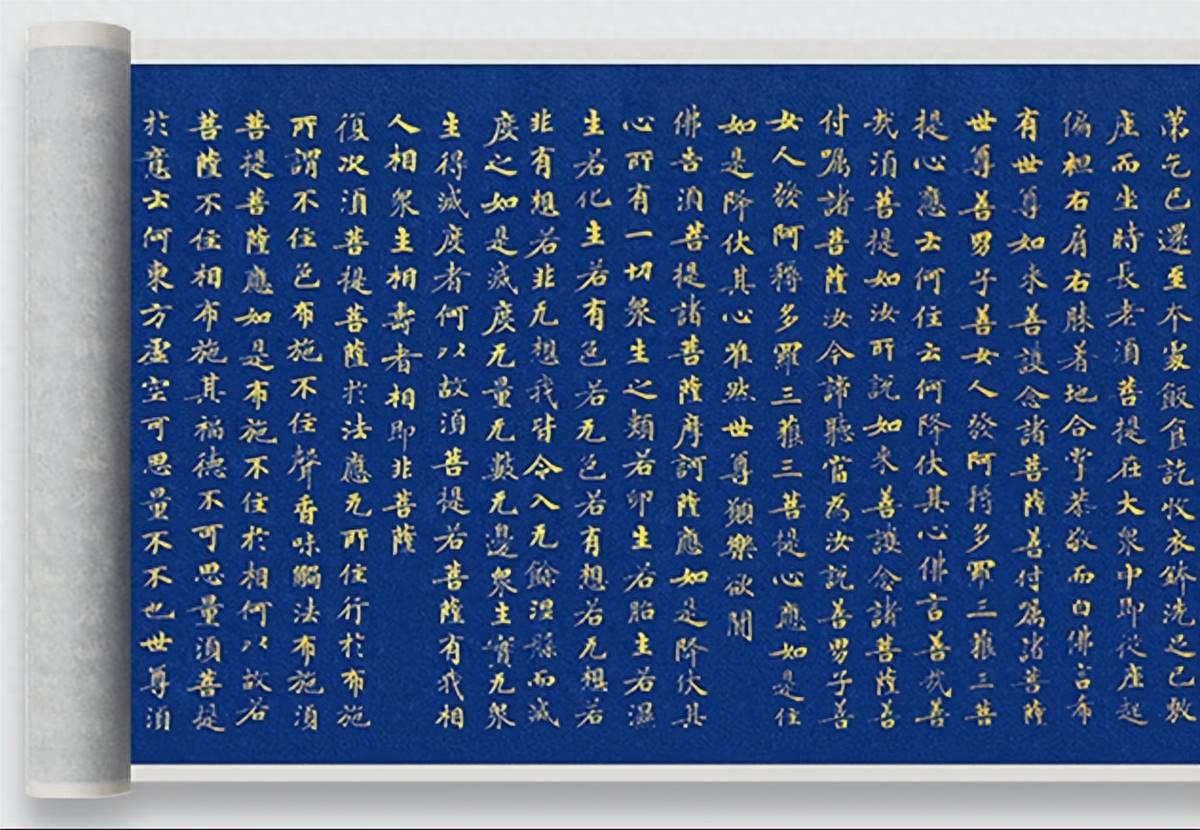 第乞已還至本處飯食訖收衣鉢洗足已敷
座而坐時長老須菩提在大衆中即從座起
偏袒右肩右膝著地合掌恭敬而白佛言希
有世尊如來善護念諸菩薩善付囑諸菩薩
世尊善男子善女人發阿耨多羅三藐三菩
提心應云何住云何降伏其心佛言善哉善
哉須菩提如汝所說如來善護念諸菩薩善
付囑諸菩薩汝今諦聽當為汝說善男子善
女人發阿耨多羅三藐三菩提心應如是住
如是降伏其心唯然世尊願樂欲聞
佛告須菩提諸菩薩摩訶薩應如是降伏其
心所有一切衆生之類若卵生若胎生若濕
生若化生若有色若无色若有想若无想若
非有想若非无想我皆令入无餘涅槃而滅
度之如是滅度无量无數无邊衆生實无衆
生得滅度者何以故須菩提若菩薩有我相
人相衆生相壽者相即非菩薩
復次須菩提菩薩於法應无所住行於布施
所謂不住色布施不住聲香味觸法布施須
菩提菩薩應如是布施不住於相何以故若
菩薩不住相布施其福德不可思量須菩提
於意云何東方虛空可思量不不也世尊須